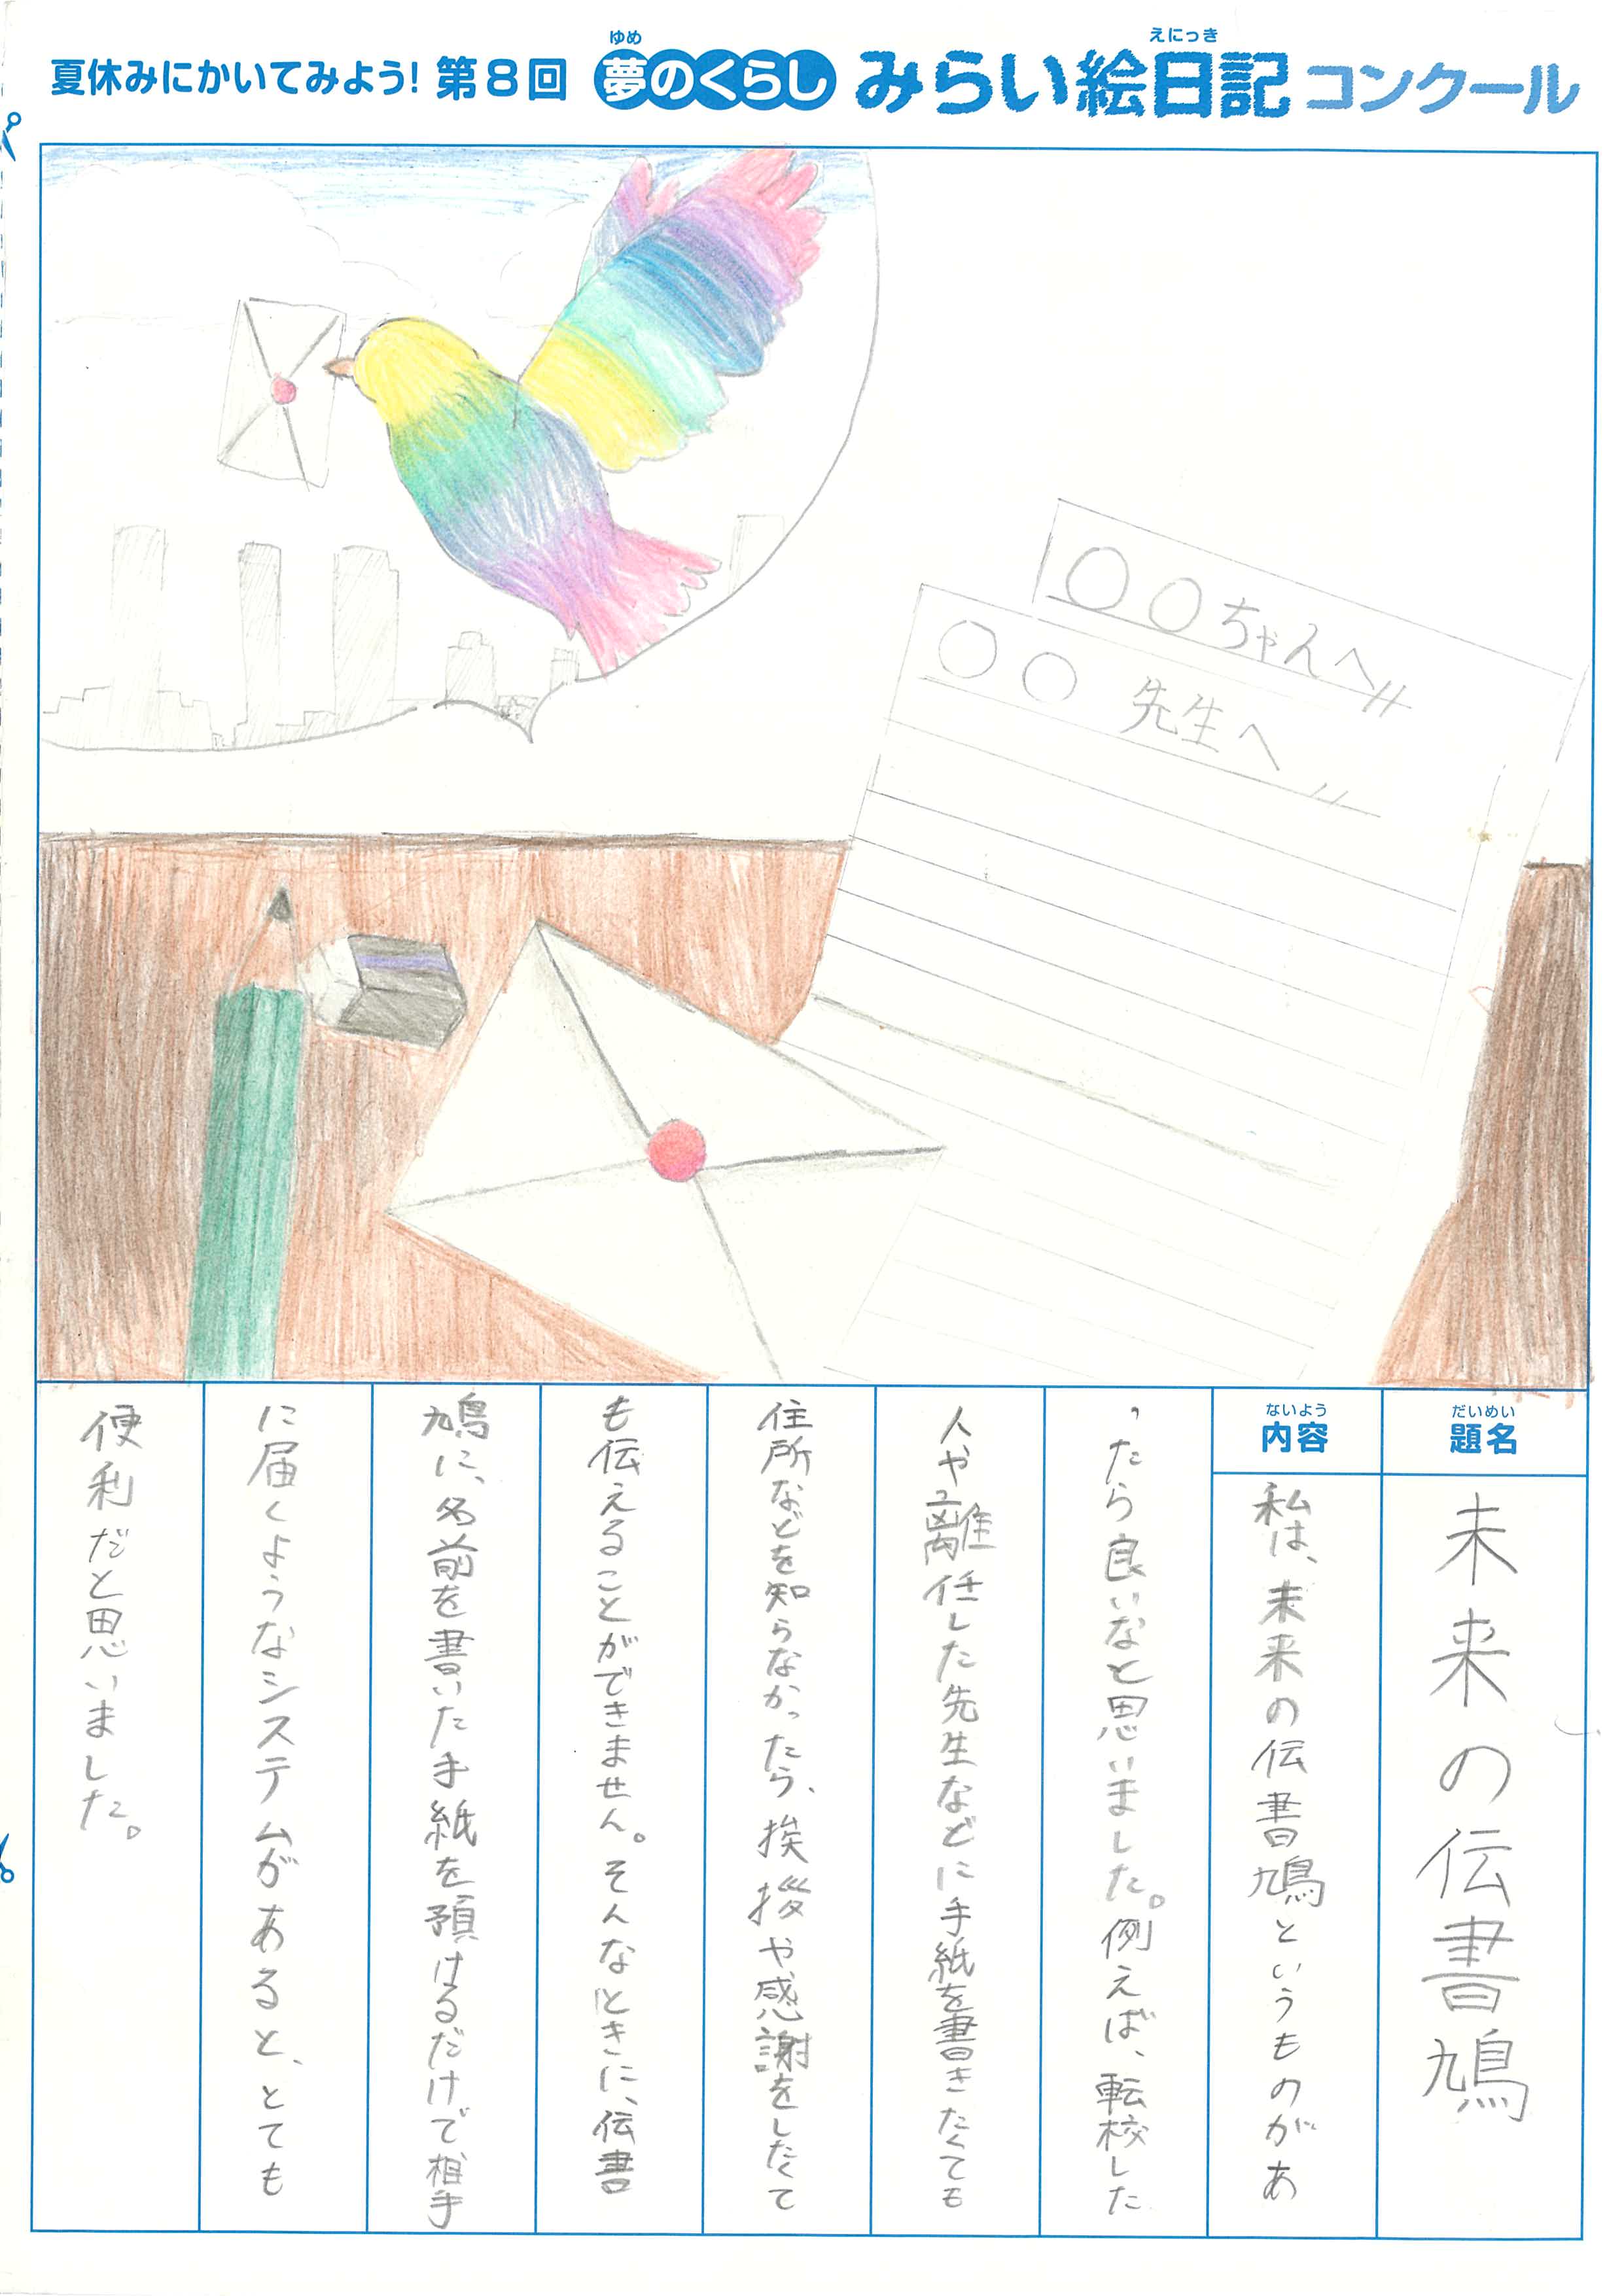 夏休みにかいてみよう! 第8回 夢のくらし みらい絵日記 コンクール
ゆめ
えにっき
○○ちゃんへ
○○ 先生へ
だいめい
題名
未来の伝書鳩
ないよう
内容
私は、未来の伝書鳩というものがあ
ったら良いなと思いました。例えば、転校した
人や離任した先生などに手紙を書きたくても
住所などを知らなかったら、挨拶や感謝をしたくて
も伝えることができません。そんなときに、伝書
鳩に、名前を書いた手紙を預けるだけで相手
に届くようなシステムがあると、とても
便利だと思いました。